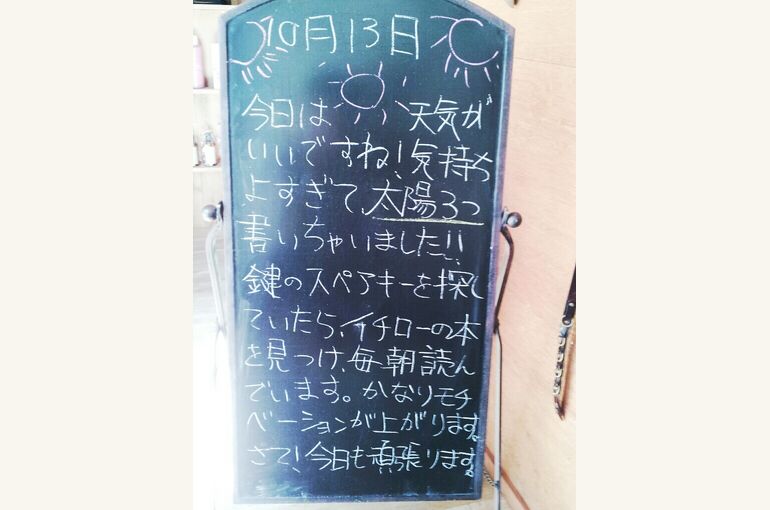 10月13日
今日は 天気が
いいですね!気持ち
よすぎて、太陽3つ
書いちゃいました!!
鍵のスペアキーを探し
ていたら、イチローの本
を見つけ、毎朝読ん
でいます。かなりモチ
ベーションが上がります。
さて!今日も頑張ります。